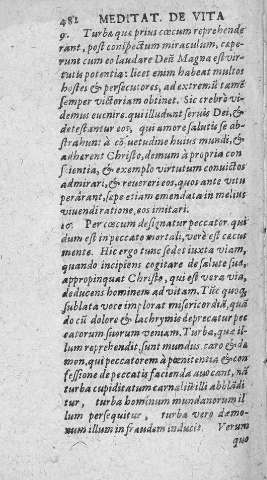 482 MEDITAT. DE VITA
9. Turba quæ prius cœcum reprehende
rant, post conspectum miraculum, cæpe-
runt cum eo laudare Deũ Magna est vir-
tutis potentia: licet enim habeat multos
hostes & persecutores, ad extremũ tamẽ
semper victoriam obtinet. Sic crebrò vi-
demus euenire. qui illudunt seruis Dei, &
detestantur eos, qui amore salutis se ab-
strahunt à cõsuetudine huius mundi, &
adhærent Christo, demum à propria con
scientia, & exemplo virtutum conuictos
admirari, & reuereri eos, quos ante vitu
perârant, sæpe etiam emendata in melius
viuendi ratione, eos imitari.
10. Per cœcum designatur peccator qui
dum est in peccato mortali, verè est cæcus
mente. Hic ergo tunc sedet iuxta viam,
quando incipiens cogitare de salute sua,
appropinquat Christo, qui est vera via,
deducens hominem ad vitam. Tũc quoq;
sublata voce implorat misericordiã, quã
do cũ dolore & lachrymis deprecatur pec
catorum suorum veniam. Turba, quæ il-
lum reprehendit, sunt mundus, caro & dæ
mon, qui peccatorem à pœnitentia & con
fessione de peccatis facienda auocant, nã
turba cupiditatum carnaliũ illi abblãdi
tur, turba hominum mundanorum il
lum persequitur, turba vero dæmo-
num illum in fraudem inducit. Verum
quo